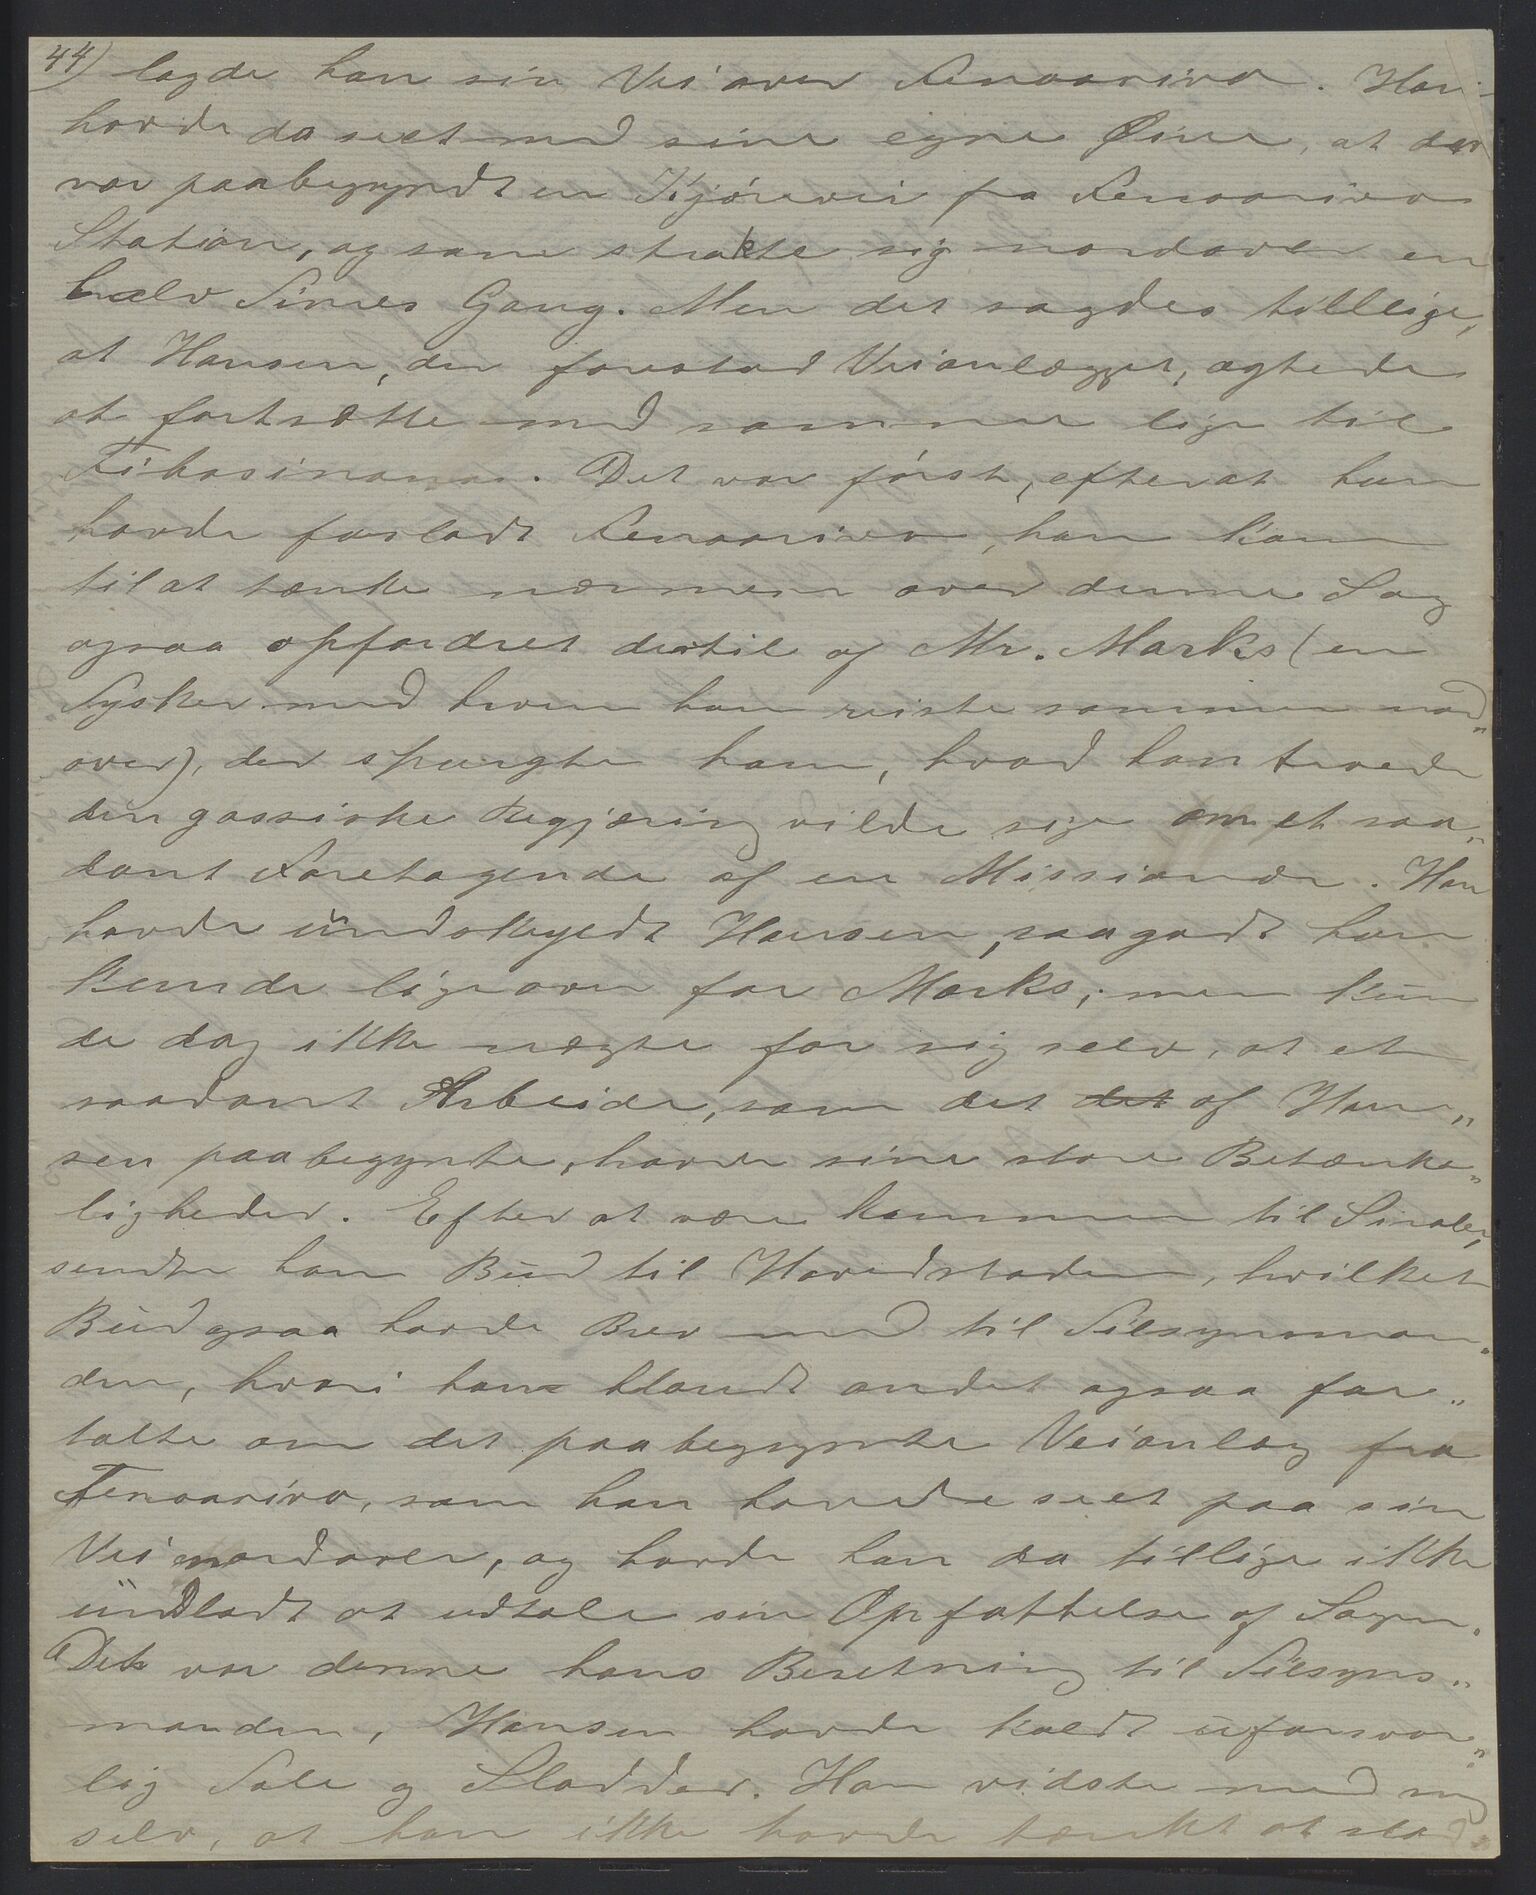 44) lagde han sin Vei over Fenoarivo. Han
havde da seet med sine egne Øine, at der
var paabegyndt en Kjørevei fra Fenoarivo
Station, og som strakte sig nordover en
halv Times Gang. Men det sagdes tillige,
at Hansen, der forestod Veianlægget, agtede
at fortsætte med samme lige til
Fihasinana. Det var først, efterat han
havde forladt Fenoarivo, han kom
til at tænke nærmere over denne Sag
ogsaa opfordret dertil af Mr. Marks (en
Tysker med hvem han reiste sammen nord„
over), der spurgte ham, hvad han troede
den gassiske Regjæring vilde sige om et saa„
dant Foretagende af en Missionær. Han
havde undskyldt Hansen, saagodt han
kunde ligeover for Marks; men kun
de dog ikke nægte for sig selv, at et
saadant Arbeide, som det det af Han„
sen paabegynte, havde sine store Betænke„
ligheder. Efter at være kommen til Sirabe,
sendte han Bud til Hovedstaden, hvilket
Bud ogsaa havde Brev med til Tilsynsman„
den, hvori han blandt andet ogsaa for„
talte om det paabegynte Veianlæg fra
Fenoarivo, som han havde seet paa sin
Vei nordover, og havde han da tillige ikke
undladt at udtale sin Opfattelse af Sagen.
Det var denne hans Beretning til Tilsyns„
manden, Hansen havde kaldt uforsvar„
lig Tale og Sladder. Han vidste med sig
selv, at han ikke havde tænkt at slad„